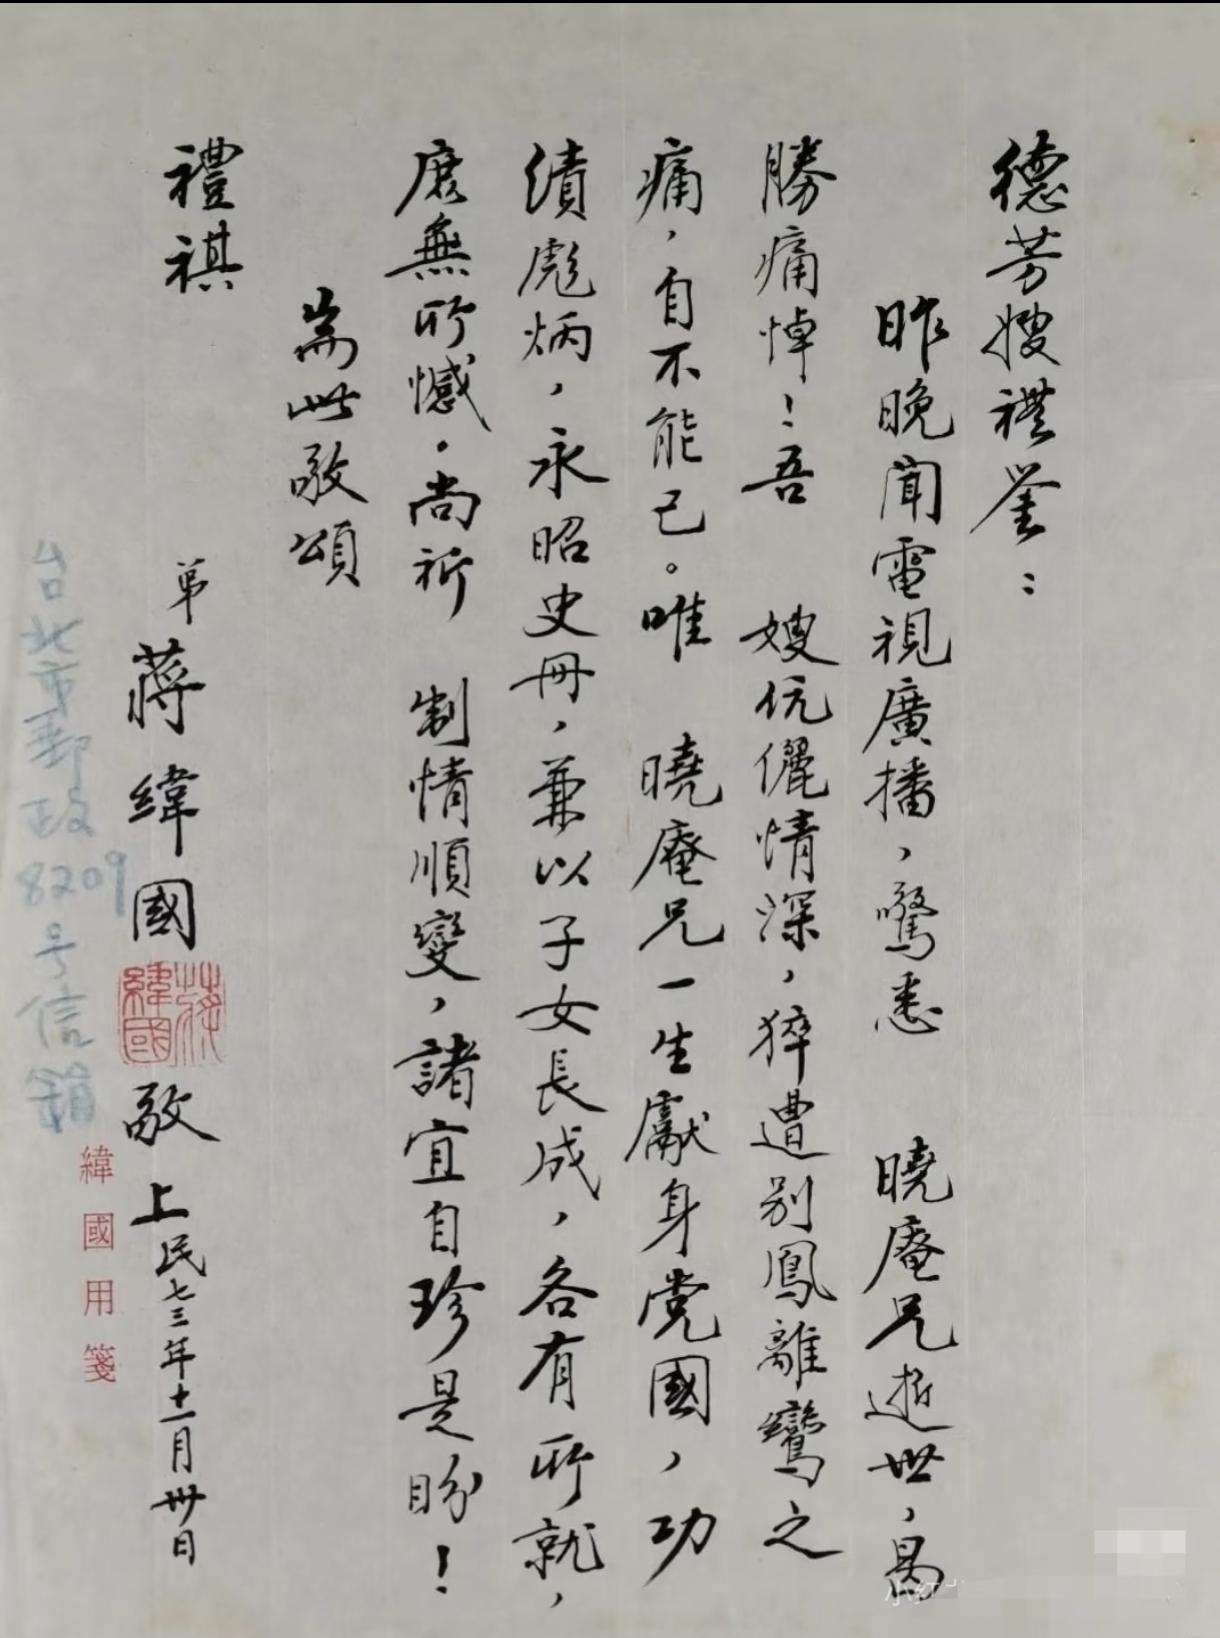 德芳嫂禮鉴：
昨晚聞電視廣播，驚悉　曉庵兄逝世，曷
勝痛悼！吾　嫂伉儷情深，猝遭别鳳離鸞之
痛，自不能已。唯　曉庵兄一生獻身党國，功
績彪炳，永昭史冊，兼以子女長成，各有所就，
庶無所憾。尚祈　制情順變，諸宜自珍是盼！
耑此敬頌
禮祺
弟蔣緯國敬上民七三年十一月卅日
蔣緯國
緯國用箋
台北市郵政8209号信箱